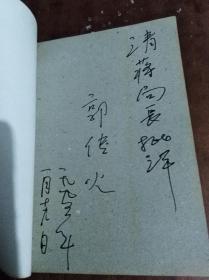 请蒋局长批评
郭俊火
一九九三年
一月十九日